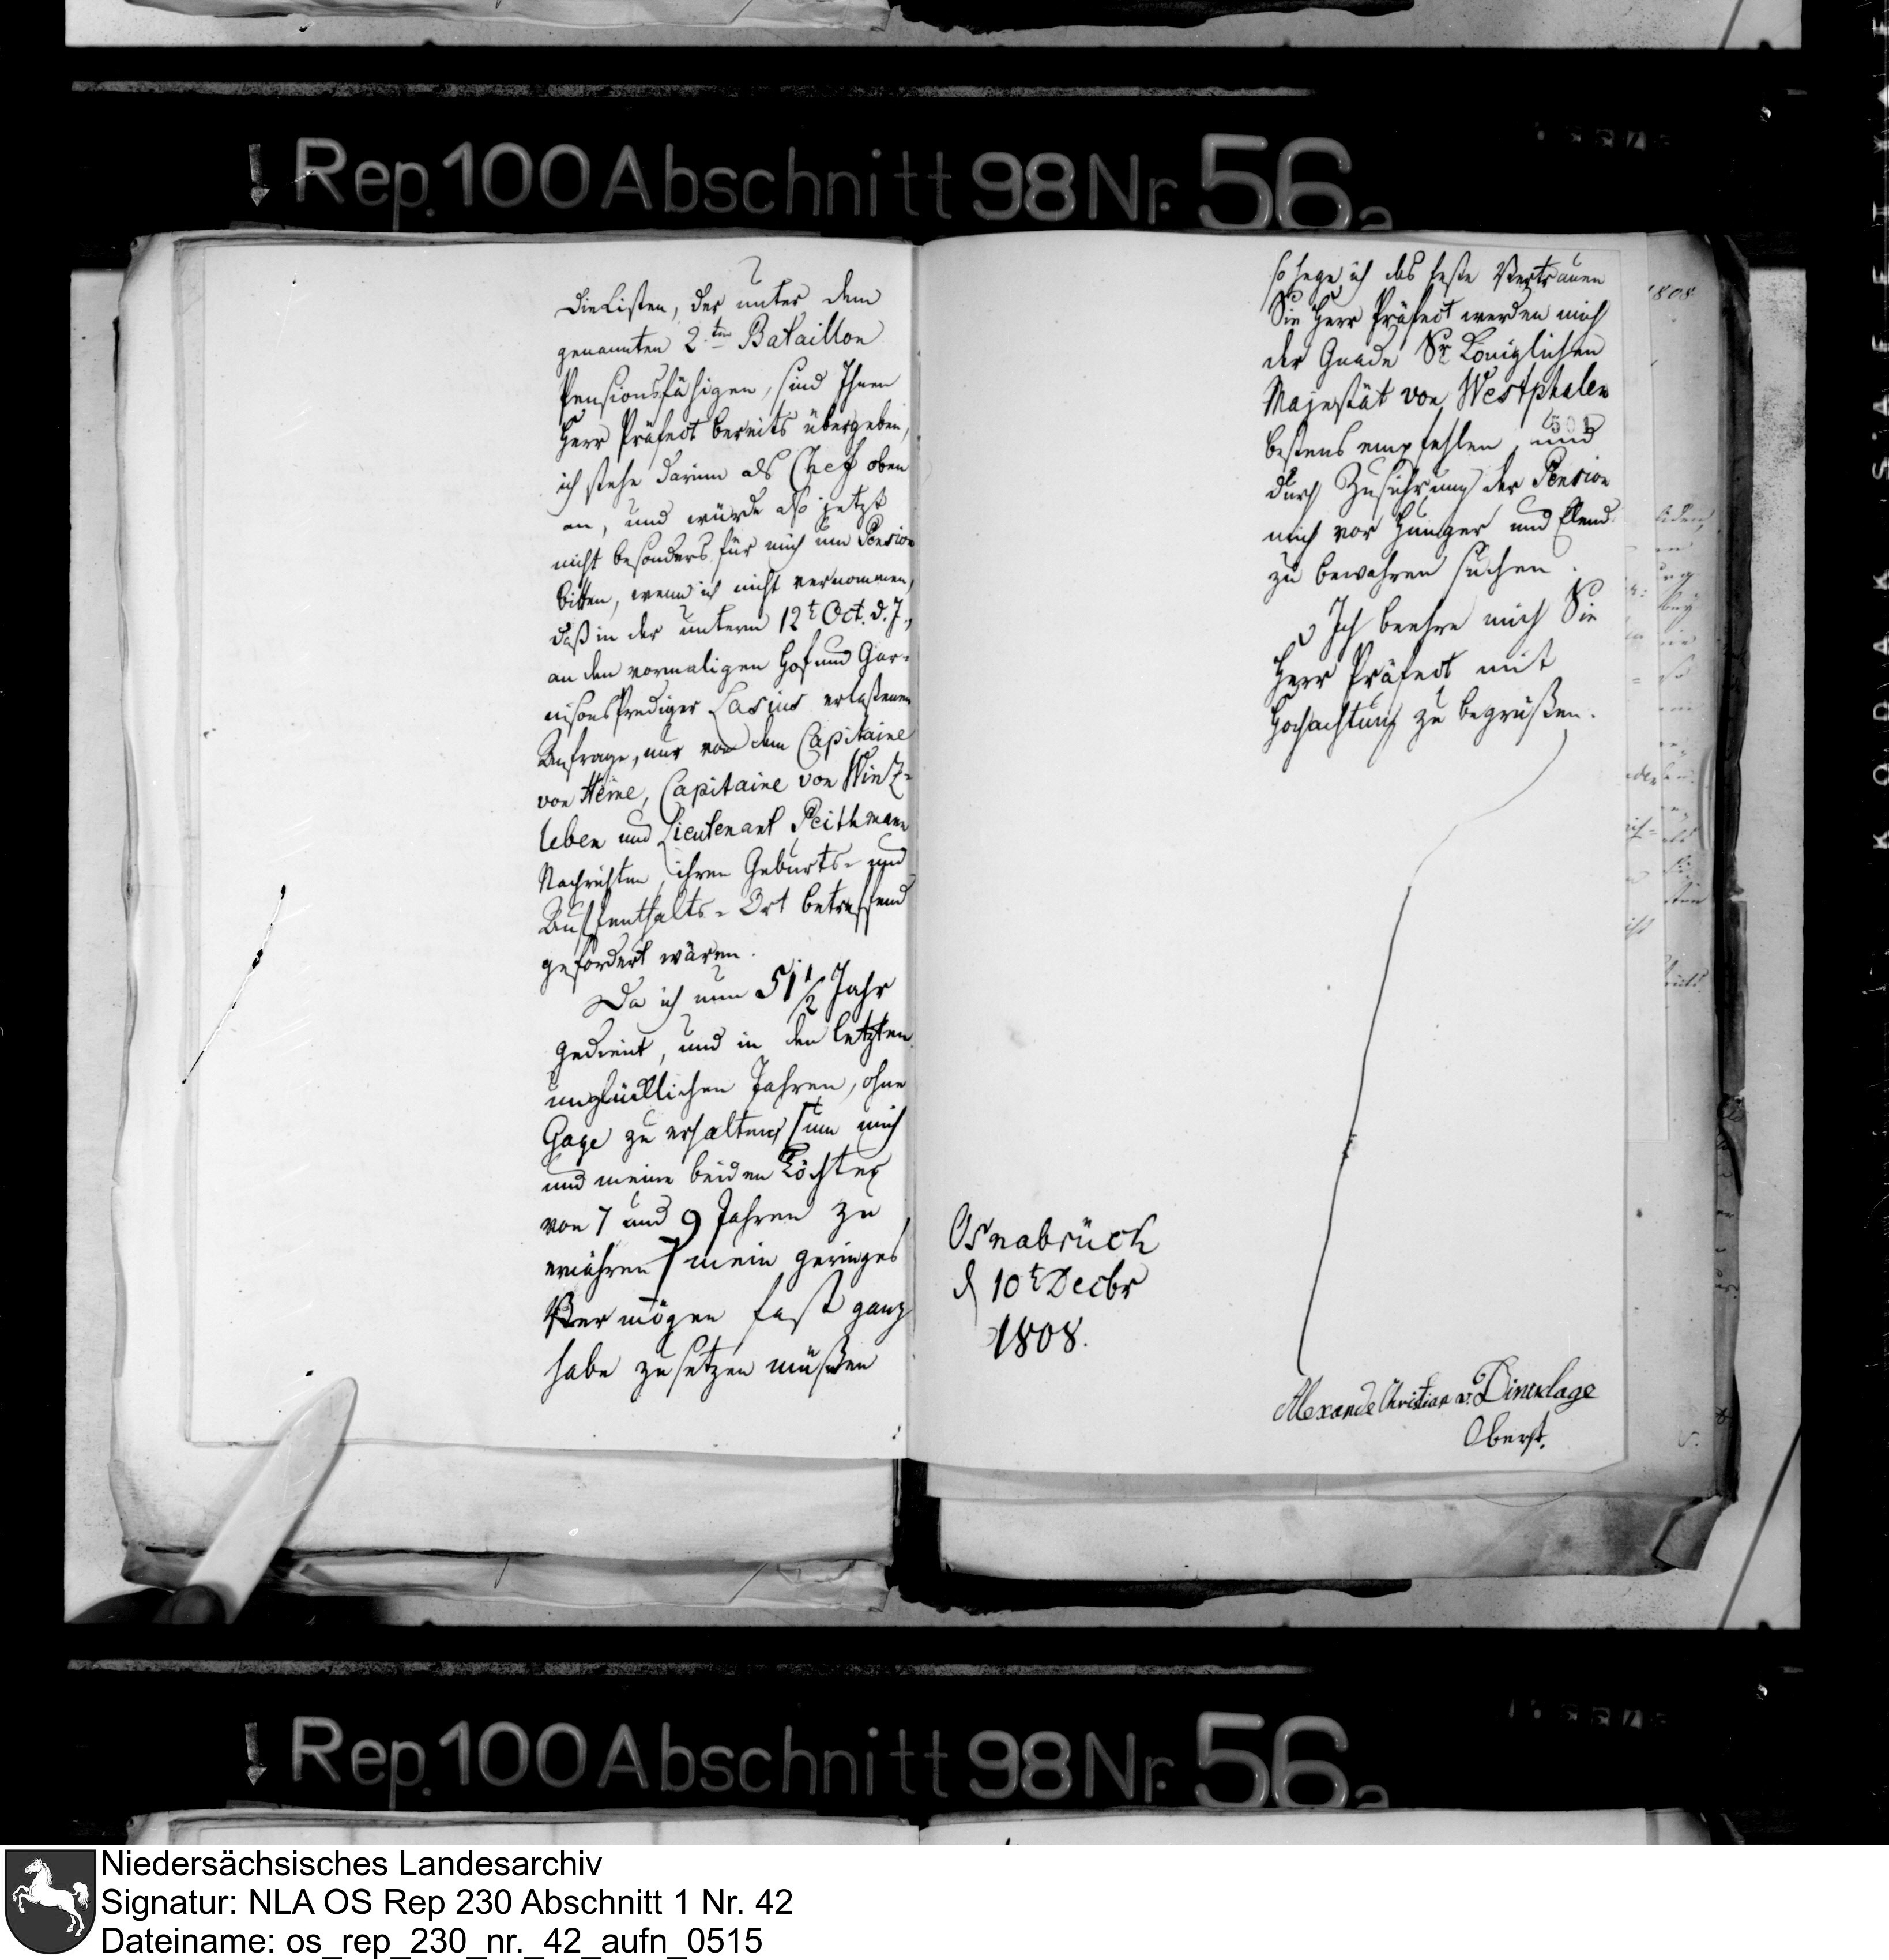 Rep. 100 Abschnitt 98 Nr. 56a
Die Listen, der unter dem
genannten 2.ten Bataillon
Pensionsfähigen, sind Ihnen
Herr Präfect bereits übergeben,
ich stehe darinn als Chef oben
an, und würde also jetzt
nicht besonders für mich um Pension
bitten, wenn ich nicht vernommen,
daß in der unterm 12t Oct. d. J.,
an den vormaligen Hof und Gar-
nisonsPrediger Lasius erlaßenen
Anfrage, nur von dem Capitaine
von Heine, Capitaine von Witz-
leben und Lieutenant Peithmann
Nachrichten, ihren Geburts- und
Auffenthalts-Ort betreffend
gefordert wären.
Da ich nun 51 1/2 Jahr
gedient, und in den letzten
unglücklichen Jahren, ohne
Gage zu erhalten, um mich
und meine beiden Töchter
von 7 und 9 Jahren zu
ernähren, mein geringes
Vermögen fast ganz
habe zusetzen müßen
so hege ich das feste Vertrauen
Sie Herr Präfect werden mich
der Gnade Sr Königlichen
Majestät von Westphalen
bestens empfehlen, und
501
durch Zusichrung der Pension
mich vor Hunger und Elend
zu bewahren suchen.
Ich beehre mich Sie
Herr Präfect mit
Hochachtung zu begrüßen.
Osnabrück
d 10t Decbr
1808.
Alexande Christian v. Dincklage
Oberst.
1808
Rep. 100 Abschnitt 98 Nr. 56a
KODAK SAFETY
Niedersächsisches Landesarchiv
Signatur: NLA OS Rep 230 Abschnitt 1 Nr. 42
Dateiname: os_rep_230_nr._42_aufn_0515